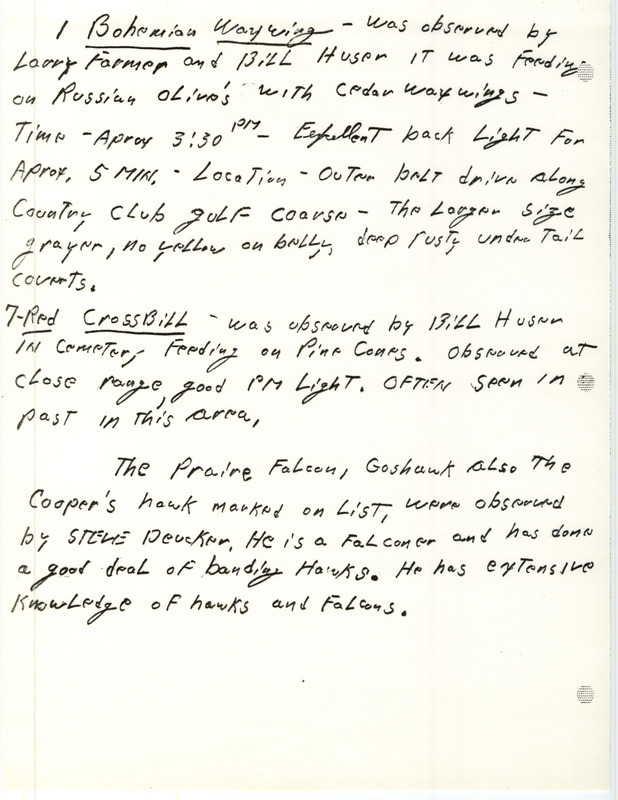 1 Bohemian Waxwing - was observed by
Larry Farmer and Bill Huser IT was Feeding
on Russian olive's with Cedar waxwings -
Time - Aprox 3:30 PM - Exellent back Light For
Aprox. 5 MIN. - Location - Outer belt drive along
Country Club gulf coarse - The Larger size
grayer, no yellow on belly, deep rusty under Tail
coverts.
7-Red CrossBill - was observed by Bill Huser
IN Cemetery Feeding on Pine Cones. Observed at
close range, good PM Light. OFTEN seen in
past in this area,
The Praire Falcon, Goshawk also The
Cooper's hawk marked on List, were observed
by STEVE Deucker. He is a Falconer and has done
a good deal of banding Hawks. He has extensive
Knowledge of hawks and Falcons.